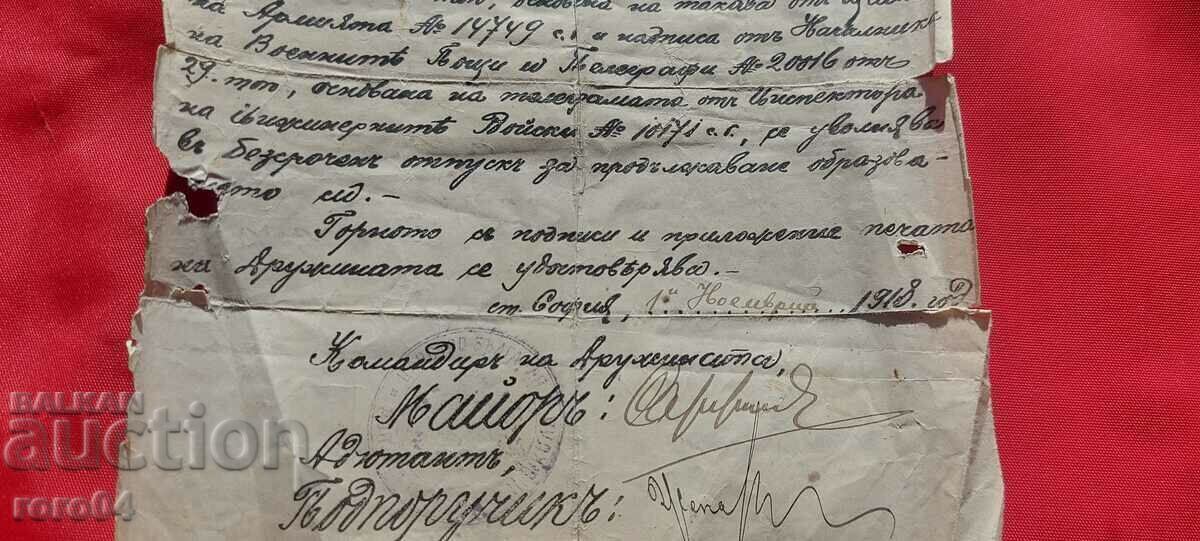 топ, основана на такава отъ
на Армията № 14749 с.г. и надписа отъ Началника
на Военнитѣ Пощи и Телеграфи № 20016 отъ
29. топ, основана на телеграмата отъ Инспектора
на Инжинернитѣ Войски № 10171 с.г., се уволнява
въ безсроченъ отпускъ за продължаване образова-
нието си.-
Горното съ подписи и приложение печата
на Дружината се удостовѣрява.-
ст. София, 1й Ноемврий 1918. год
Командиръ на Дружината,
Майоръ:
Адютантъ,
Подпоручикъ:
BALKAN
auction
roro04